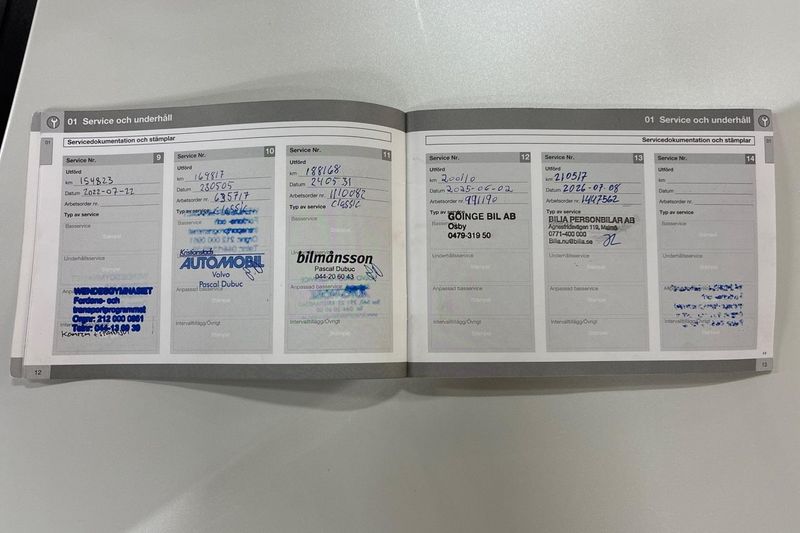 01 Service och underhåll
Servicedokumentation och stämplar
01
Service Nr. 9
Utförd
km 154823
Datum 2022-07-22
Arbetsorder nr.
Typ av service
Basservice
Underhållsservice
Anpassad basservice
WENDESGYMNASIET
Fordons- och
transportprogrammet
Orgnr: 212 000 0951
Intervalltillägg/Övrigt
Service Nr. 10
Utförd
km 169817
Datum 230505
Arbetsorder nr. 635717
Typ av service Classic
Kristianstads
AUTOMOBIL
Volvo
Pascal Dubuc
Anpassad basservice
Intervalltillägg/Övrigt
Stämpel
Service Nr. 11
Utförd
km 188168
Datum 240531
Arbetsorder nr. 1110082
Typ av service Classic
Basservice
bilmånsson
Pascal Dubuc
044-20 60 43
Anpassad basservice
Intervalltillägg/Övrigt
12
01 Service och underhåll
Servicedokumentation och stämplar
01
Service Nr. 12
Utförd
km 200110
Datum 2025-06-02
Arbetsorder nr. 991190
Typ av service
GÖINGE BIL AB
Osby
0479-319 50
Basservice
Underhållsservice
Anpassad basservice
Intervalltillägg/Övrigt
Stämpel
Service Nr. 13
Utförd
km 210517
Datum 2026-07-08
Arbetsorder nr. 1447562
Typ av service
BILIA PERSONBILAR AB
Agnesfridsvägen 119, Malmö
0771-400 000
Bilia.nu@bilia.se
Underhållsservice
Anpassad basservice
Intervalltillägg/Övrigt
Stämpel
Service Nr. 14
Utförd
km
Datum
Arbetsorder nr.
Typ av service
Basservice
Underhållsservice
Anpassad basservice
Intervalltillägg/Övrigt
13